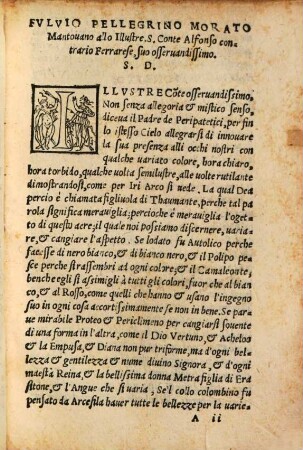 FVLVIO PELLEGRINO MORATO
Mantouano allo Illustre. S. Conte Alfonso con
trario Ferrarese, suo osseruandissimo.
S. D.
ILLVSTRE Cōte osseruandissimo.
Non senza allegoria & mistico senso,
diceua il Padre de Peripatetici, per fin
lo istesso Cielo allegrarsi di innouare
la sua presenza alli occhi nostri con
qualche uariato colore, hora chiaro,
hora torbido, qualche uolta semilustre, alle uolte rutilante
dimostrandost, come per Iri Arco si uede. La qual Dea
percio è chiamata figliuola di Thaumante, perche tal pa
rola significa merauiglia; percioche è merauiglia l'ogget-
to di questo aere; il quale noi possiamo discernere, uaria-
re, & cangiare l'aspetto. Se lodato fu Autolico perche
facesse di nero bianco, & di bianco nero, & il Polipo pe
sce perche si trassembri ad ogni colore; & il Camaleonte,
benche egli si assimigli à tutti gli colori, fuor che al bian
co, & al Rosso, come quelli che hanno & usano l'ingegno
suo in ogni cosa accortissimamente se non in bene. Se pa-
rue mirabile Proteo & Periclimeno per cangiarsi souente
di una forma in l'altra, come il Dio Vertuno, & Acheloo
& la Empusa, & Diana non pur triforme, ma d'ogni bel
lezza & gentilezza & nume diuino Signora, & d'ogni
maestà Reina, & la bellissima donna Metra figlia di Era
sitone, & l'Angue che si uaria; Se'l collo colombino fu
pensato da Arcesila hauer tutte le bellezze per la uarie-
A ii